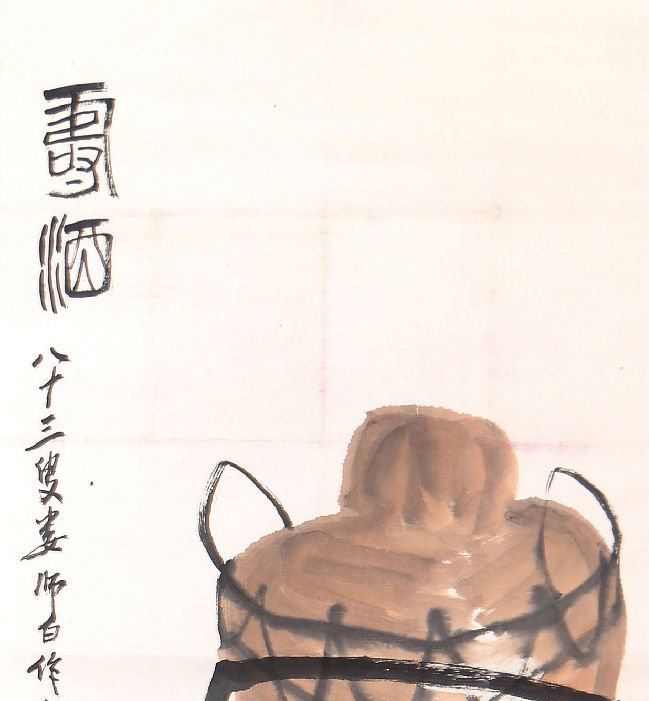 壽酒
八十三叟娄师白作